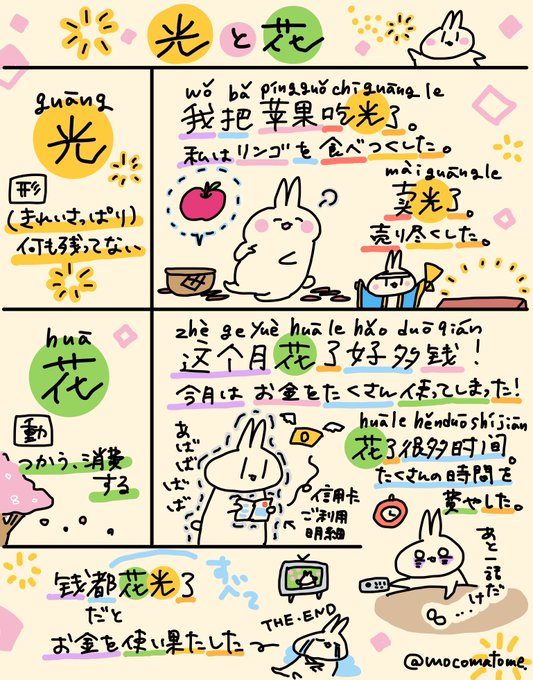 光と花
guāng
光
形
(きれいさっぱり)
何も残ってない
wǒ bǎ píngguǒ chī guāng le
我把苹果吃光了。
私はリンゴを食べつくした。
mài guāng le
卖光了。
売り尽くした。
huā
花
動
つかう、消費
する
zhè ge yuè huā le hǎo duō qián
这个月花了好多钱！
今月はお金をたくさん使ってしまった！
あばばばばば
信用卡
ご利用
明細
huā le hěn duō shí jiān
花了很多时间。
たくさんの時間を
費やした。
あと一話だけ…
钱都花光了
すべて
だと
お金を使い果たした〜
THE・END
@mocomatome